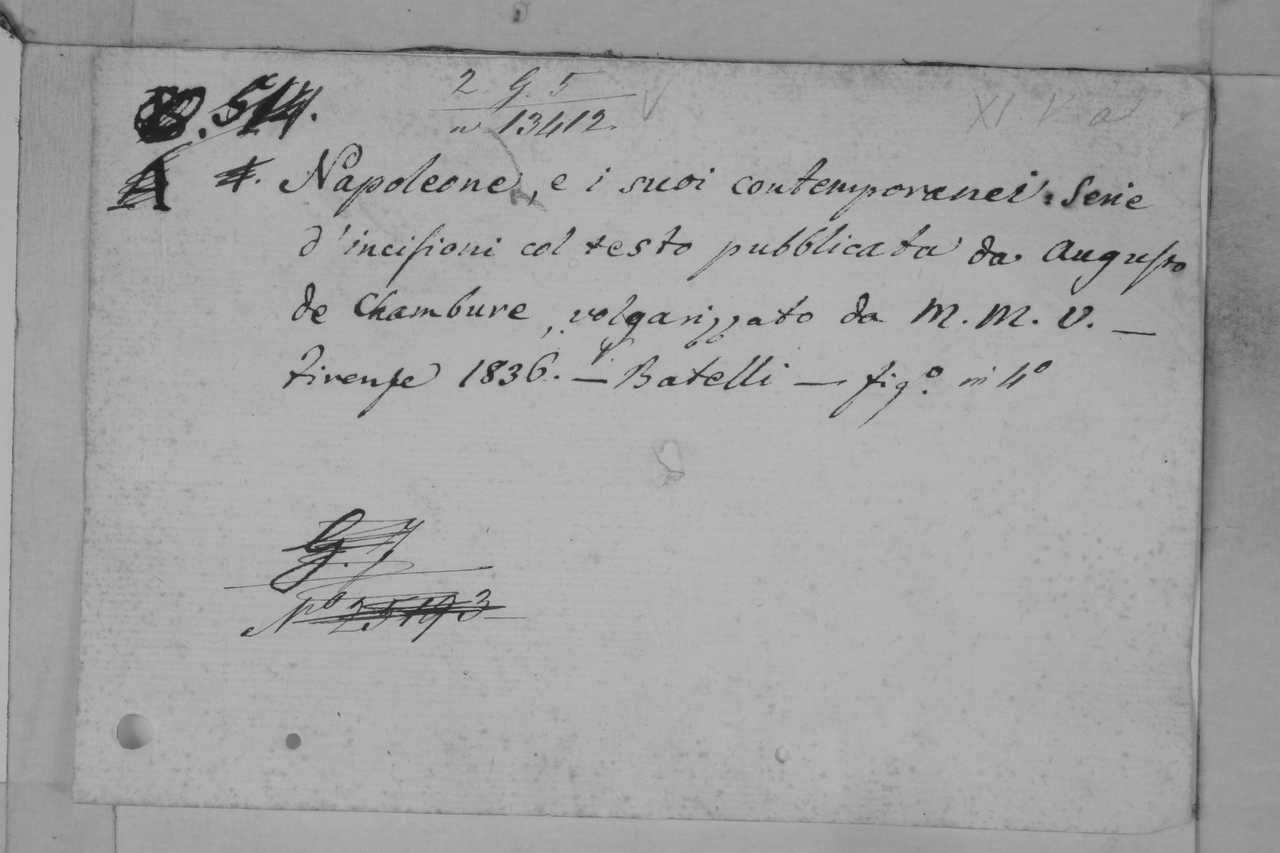 2. G. 5
n 13412.
514.
XI. V. a
A #. Napoleone, e i suoi contemporanei. Serie
d'incisioni col testo pubblicata da Augusto
de Chambure, volgarizzato da M. M. V. —
Firenze 1836. — Batelli — fig.º in 4º
G. 7
Nº 25193